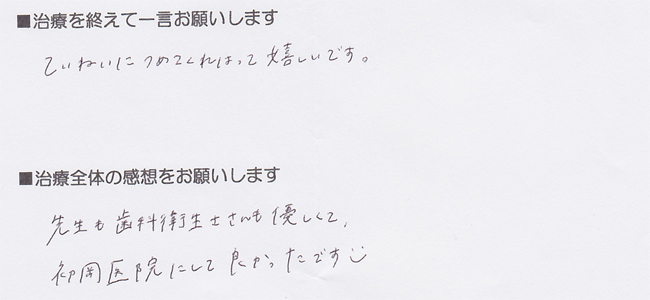 ■治療を終えて一言お願いします
ていねいにつめてくれはって嬉しいです。
■治療全体の感想をお願いします
先生も歯科衛生士さんも優しくて、
初岡医院にして良かったです